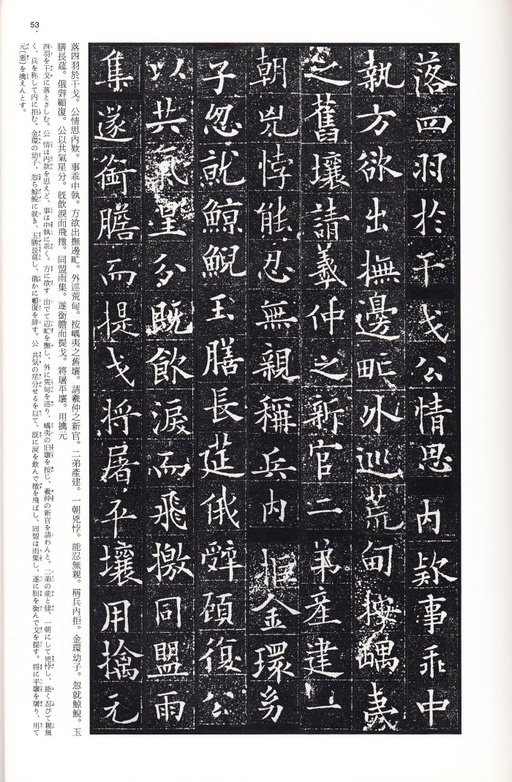 53
落四羽於干戈公情思内欵事乖中
執方欲出撫邊甿外巡荒甸按嵎夷
之舊壤請羲仲之新官二弟產建一
朝兇悖能忍無親稱兵内拒金環㓜
子忽就鯨鯢玉膳長莚俄辤顧復公
以共氣星分既飲淚而飛檄同盟雨
集遂銜膽而提戈將屠平壤用擒元
落四羽於干戈。公情思内欵。事乖中執。方欲出撫邊甿。外巡荒甸。按嵎夷之舊壤。請羲仲之新官。二弟產建。一朝兇悖。能忍無親。稱兵内拒。金環幼子。忽就鯨鯢。玉
膳長莚。俄辤顧復。公以共氣星分。既飲淚而飛檄。同盟雨集。遂銜膽而提戈。將屠平壤。用擒元
四羽を干戈に落とさしむ。公 情は内欵を思えど、事は中執に乖く。方に欲す 出でて辺甿を撫し、外に荒甸を巡り、嵎夷の旧壌を按じ、羲仲の新官を請わんと。二弟の産と建、一朝にして兇悖し、能く忍びて親無
く、兵を称して内に拒む。金環の幼子、忽ち鯨鯢に就き、玉膳長莚し、俄かに顧復を辞す。公 共気の星分せるを以て、既に涙を飲んで檄を飛ばし、同盟は雨集し、遂に胆を銜んで戈を提す。将に平壌を屠り、用て
元〔悪〕を擒えんとす。